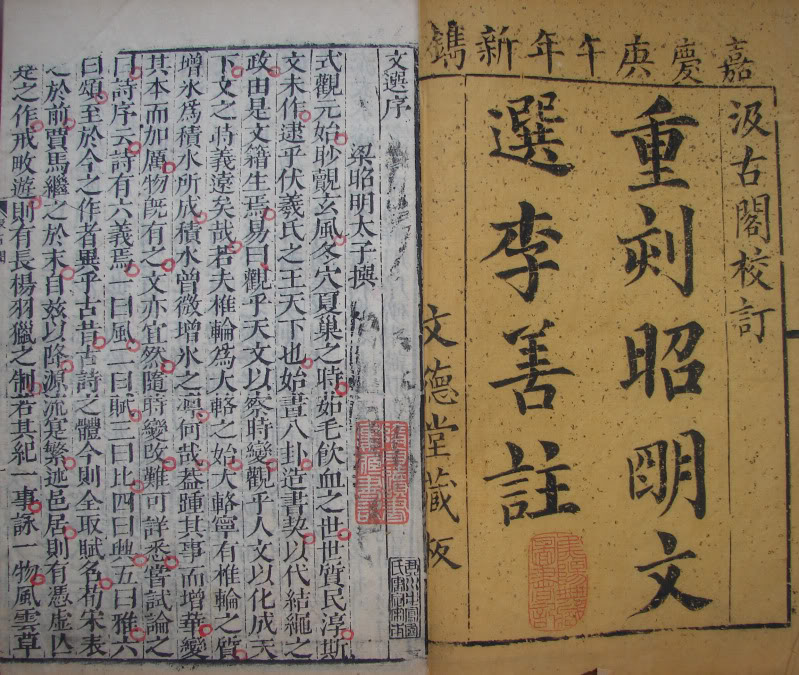 嘉慶庚午年新鐫
汲古閣校訂
重刻昭明文
選李善註
文德堂藏板
文選序
梁昭明太子撰
式觀元始眇覿玄風冬穴夏巢之時茹毛飲血之世世質民淳斯
文未作逮乎伏羲氏之王天下也始畫八卦造書契以代結繩之
政由是文籍生焉易曰觀乎天文以察時變觀乎人文以化成天
下文之時義遠矣哉若夫椎輪爲大輅之始大輅寧有椎輪之質
增氷爲積水所成積水曾微增氷之凛何哉蓋踵其事而增華變
其本而加厲物旣有之文亦宜然隨時變改難可詳悉嘗試論之
曰詩序云詩有六義焉一曰風二曰賦三曰比四曰興五曰雅六
曰頌至於今之作者異乎古昔古詩之體今則全取賦名荀宋表
之於前賈馬繼之於末自茲以降源流寔繁述邑居則有憑虛亡
是之作戒畋遊則有長楊羽獵之制若其紀一事詠一物風雲草